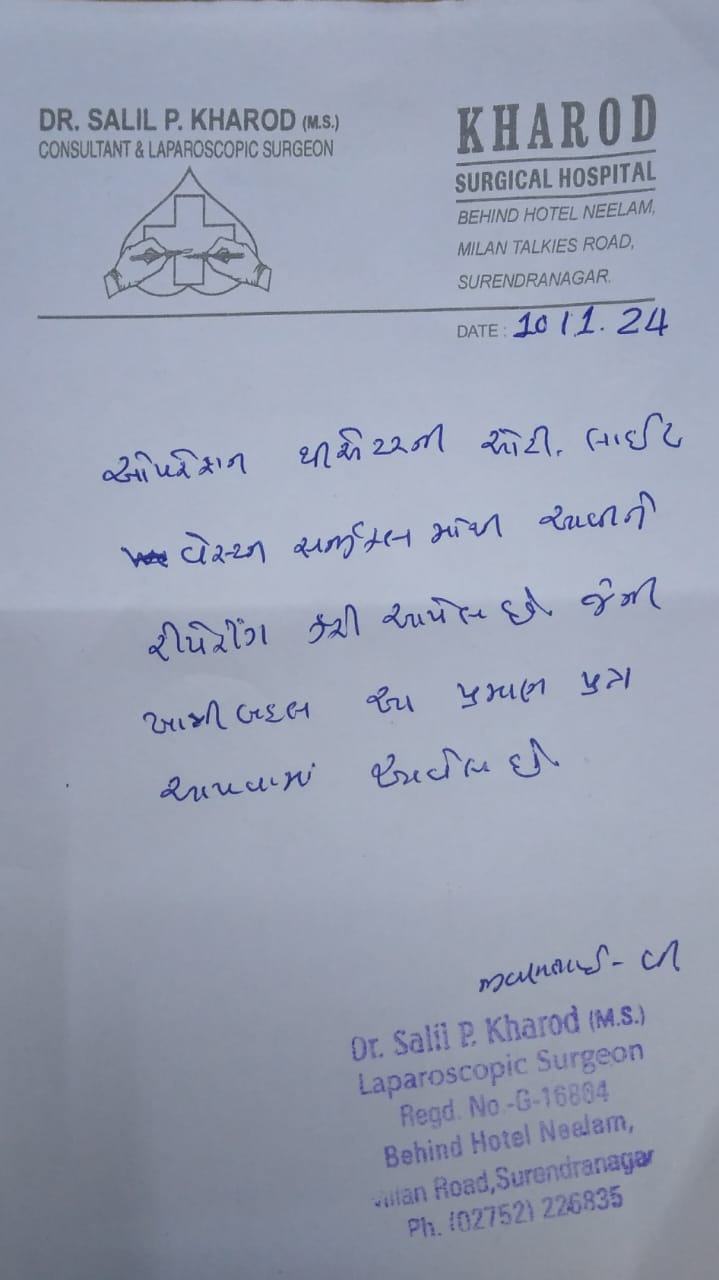 DR. SALIL P. KHAROD (M.S.)
CONSULTANT & LAPAROSCOPIC SURGEON
KHAROD
SURGICAL HOSPITAL
BEHIND HOTEL NEELAM,
MILAN TALKIES ROAD,
SURENDRANAGAR.
DATE : 10 11. 24
ઓપરેશન થીએટરની ઓટી. લાઈટ
વેસ્ટર્ન સર્જીકલ માંથી આવીને
રીપેરીંગ કરી આપેલ છે જેની
ખાત્રી બદલ આ પ્રમાણ પત્ર
આપવામાં આવેલ છે.
Dr. Salil P. Kharod (M.S.)
Laparoscopic Surgeon
Regd. No.-G-16804
Behind Hotel Neelam,
Milan Road,Surendranagar
Ph. (02752) 226835